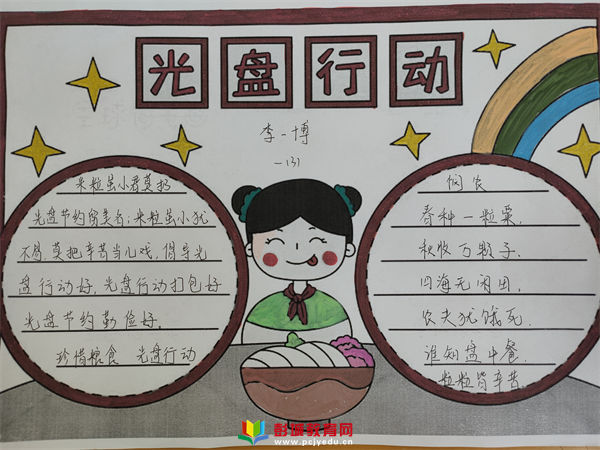 光盘行动
李一博
一(3)
米粒虽小君莫扔
光盘节约留美名;米粒虽小犹
不易莫把辛苦当儿戏,倡导光
盘行动好,光盘行动打包好
光盘节约勤俭好.
珍惜粮食 光盘行动
悯农
春种一粒粟.
秋收万颗子.
四海无闲田.
农夫犹饿死.
谁知盘中餐.
粒粒皆辛苦.
彭城教育网
www.pcjyedu.cn